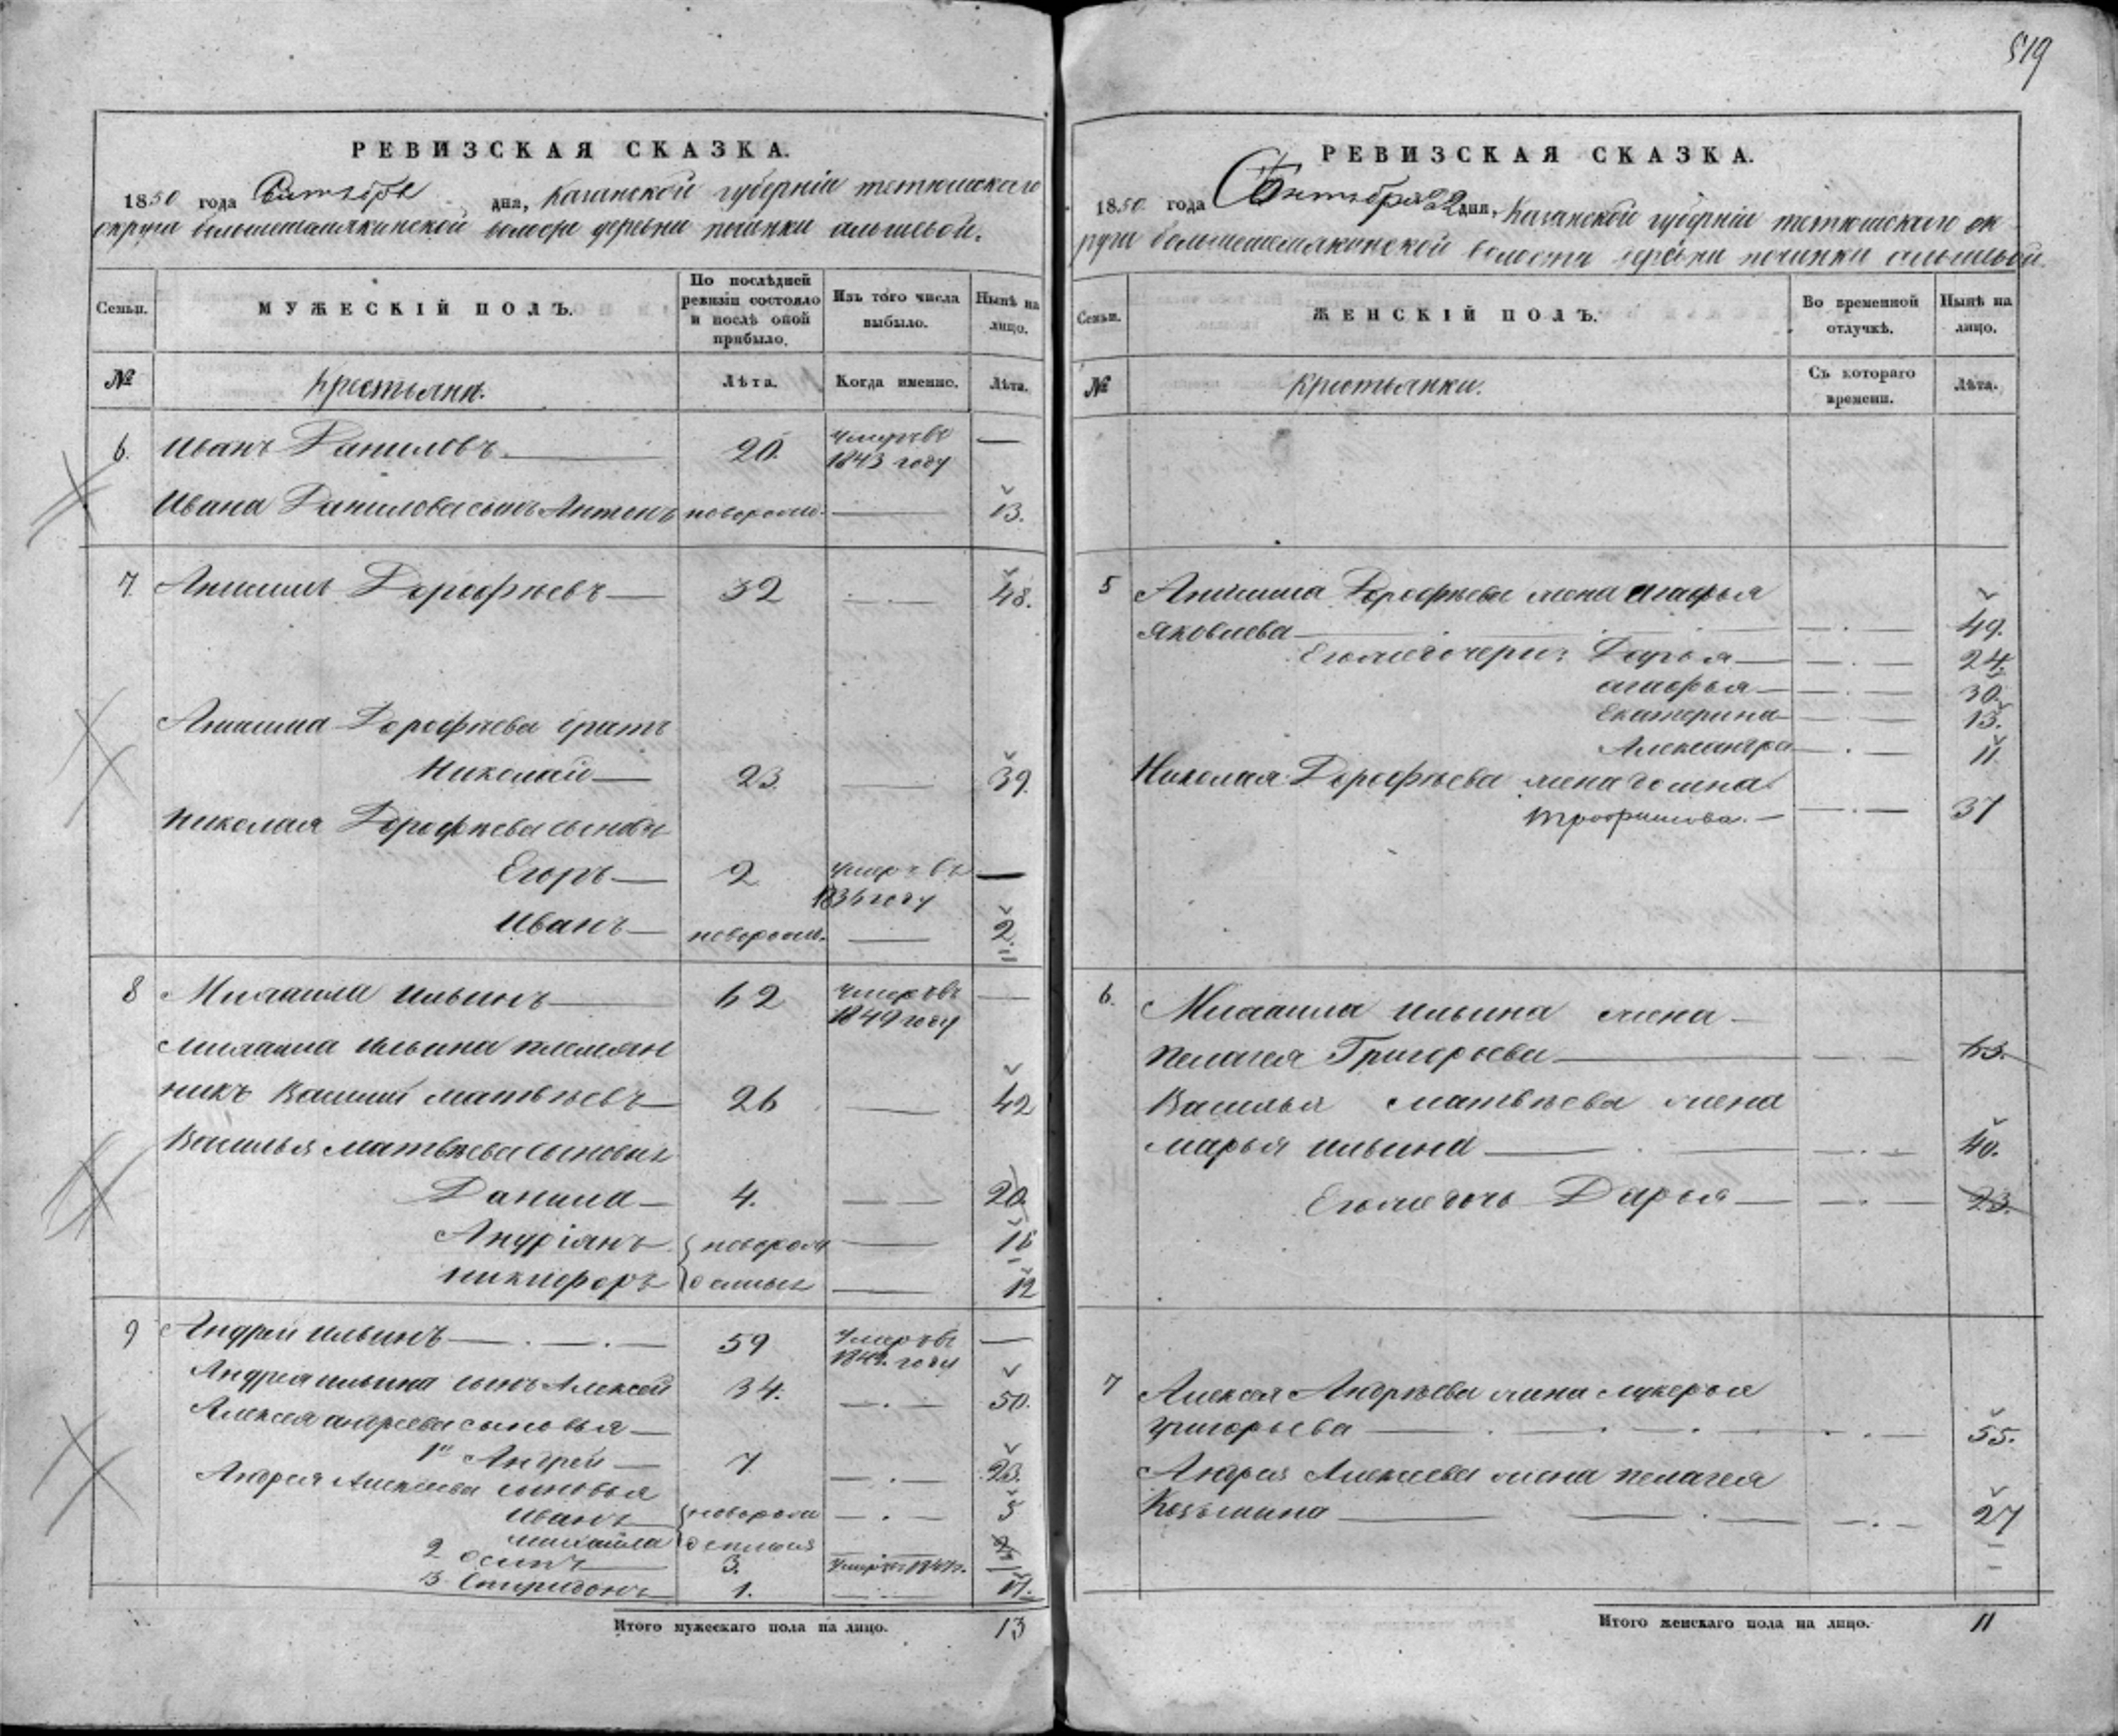 519
РЕВИЗСКАЯ СКАЗКА.
1850 года Сентября дня, Казанской губерніи тетюшскаго
округа большешемякинской деревни починки альшевой.
Семьи. МУЖЕСКІЙ ПОЛЪ. По послѣдней ревизіи состояло и послѣ оной прибыло. Изъ того числа выбыло. Нынѣ на лицо.
№ Крестьяна. Лѣта. Когда именно. Лѣта.
6. Иванъ Даниловъ 20. умеръ въ 1843 году —
Ивана Данилова сынъ Антонъ новорож. — 13.
7. Анисимъ Дорофѣевъ 32 — 48.
Анисима Дорофѣева братъ
Николай 23. — 39.
Николая Дорофѣева сыновья
Егоръ 2 умеръ въ 1836 году —
Иванъ новорож. — 2.
8 Михаила Ильинъ 62 умеръ въ 1849 году —
Михаила Ильина племян
никъ Василий Матвѣевъ 26 — 42
Василья Матвѣева сыновья
Данила 4. — 20.
Андріянъ новорож — 16
Никифоръ денныя — 12
9 Андрей Ильинъ 59 умеръ въ 1849 году —
Андрея Ильина сынъ Алексей 34. — 50.
Алексея андреева сыновья
1й Андрей 7. — 23.
Андрея Алексеева сыновья
Иванъ новорож — 5
Михайла денныя 2
2 Осипъ 3. —
3 Спиридонъ 1. — 17.
Итого мужескаго пола на лицо. 13
РЕВИЗСКАЯ СКАЗКА.
1850 года Сентября 22 дня, Казанской губерніи тетюшскаго ок
руга большешемякинской волости деревни починки альшевой.
Семьи. ЖЕНСКІЙ ПОЛЪ. Во временной отлучкѣ. Нынѣ на лицо.
№ Крестьянки. Съ котораго времени. Лѣта.
5 Анисима Дорофѣева жена агафья
Яковлева — 49.
Егоже дочери: Дарья — 24.
агафья — 30.
Екатерина — 13.
Александра — 11.
Николая Дорофѣева жена домна
трофимова. — 37
6. Михаила Ильина жена
Пелагея Григорьева — 63.
Василья Матвѣева жена
Марья Ильина — 40.
Егоже дочь Дарья — 23.
7 Алексея Андрѣева жена лукерья
григорьева — 55.
Андрея Алексеева жена пелагея
Козьмина — 27
Итого женскаго пола на лицо. 11